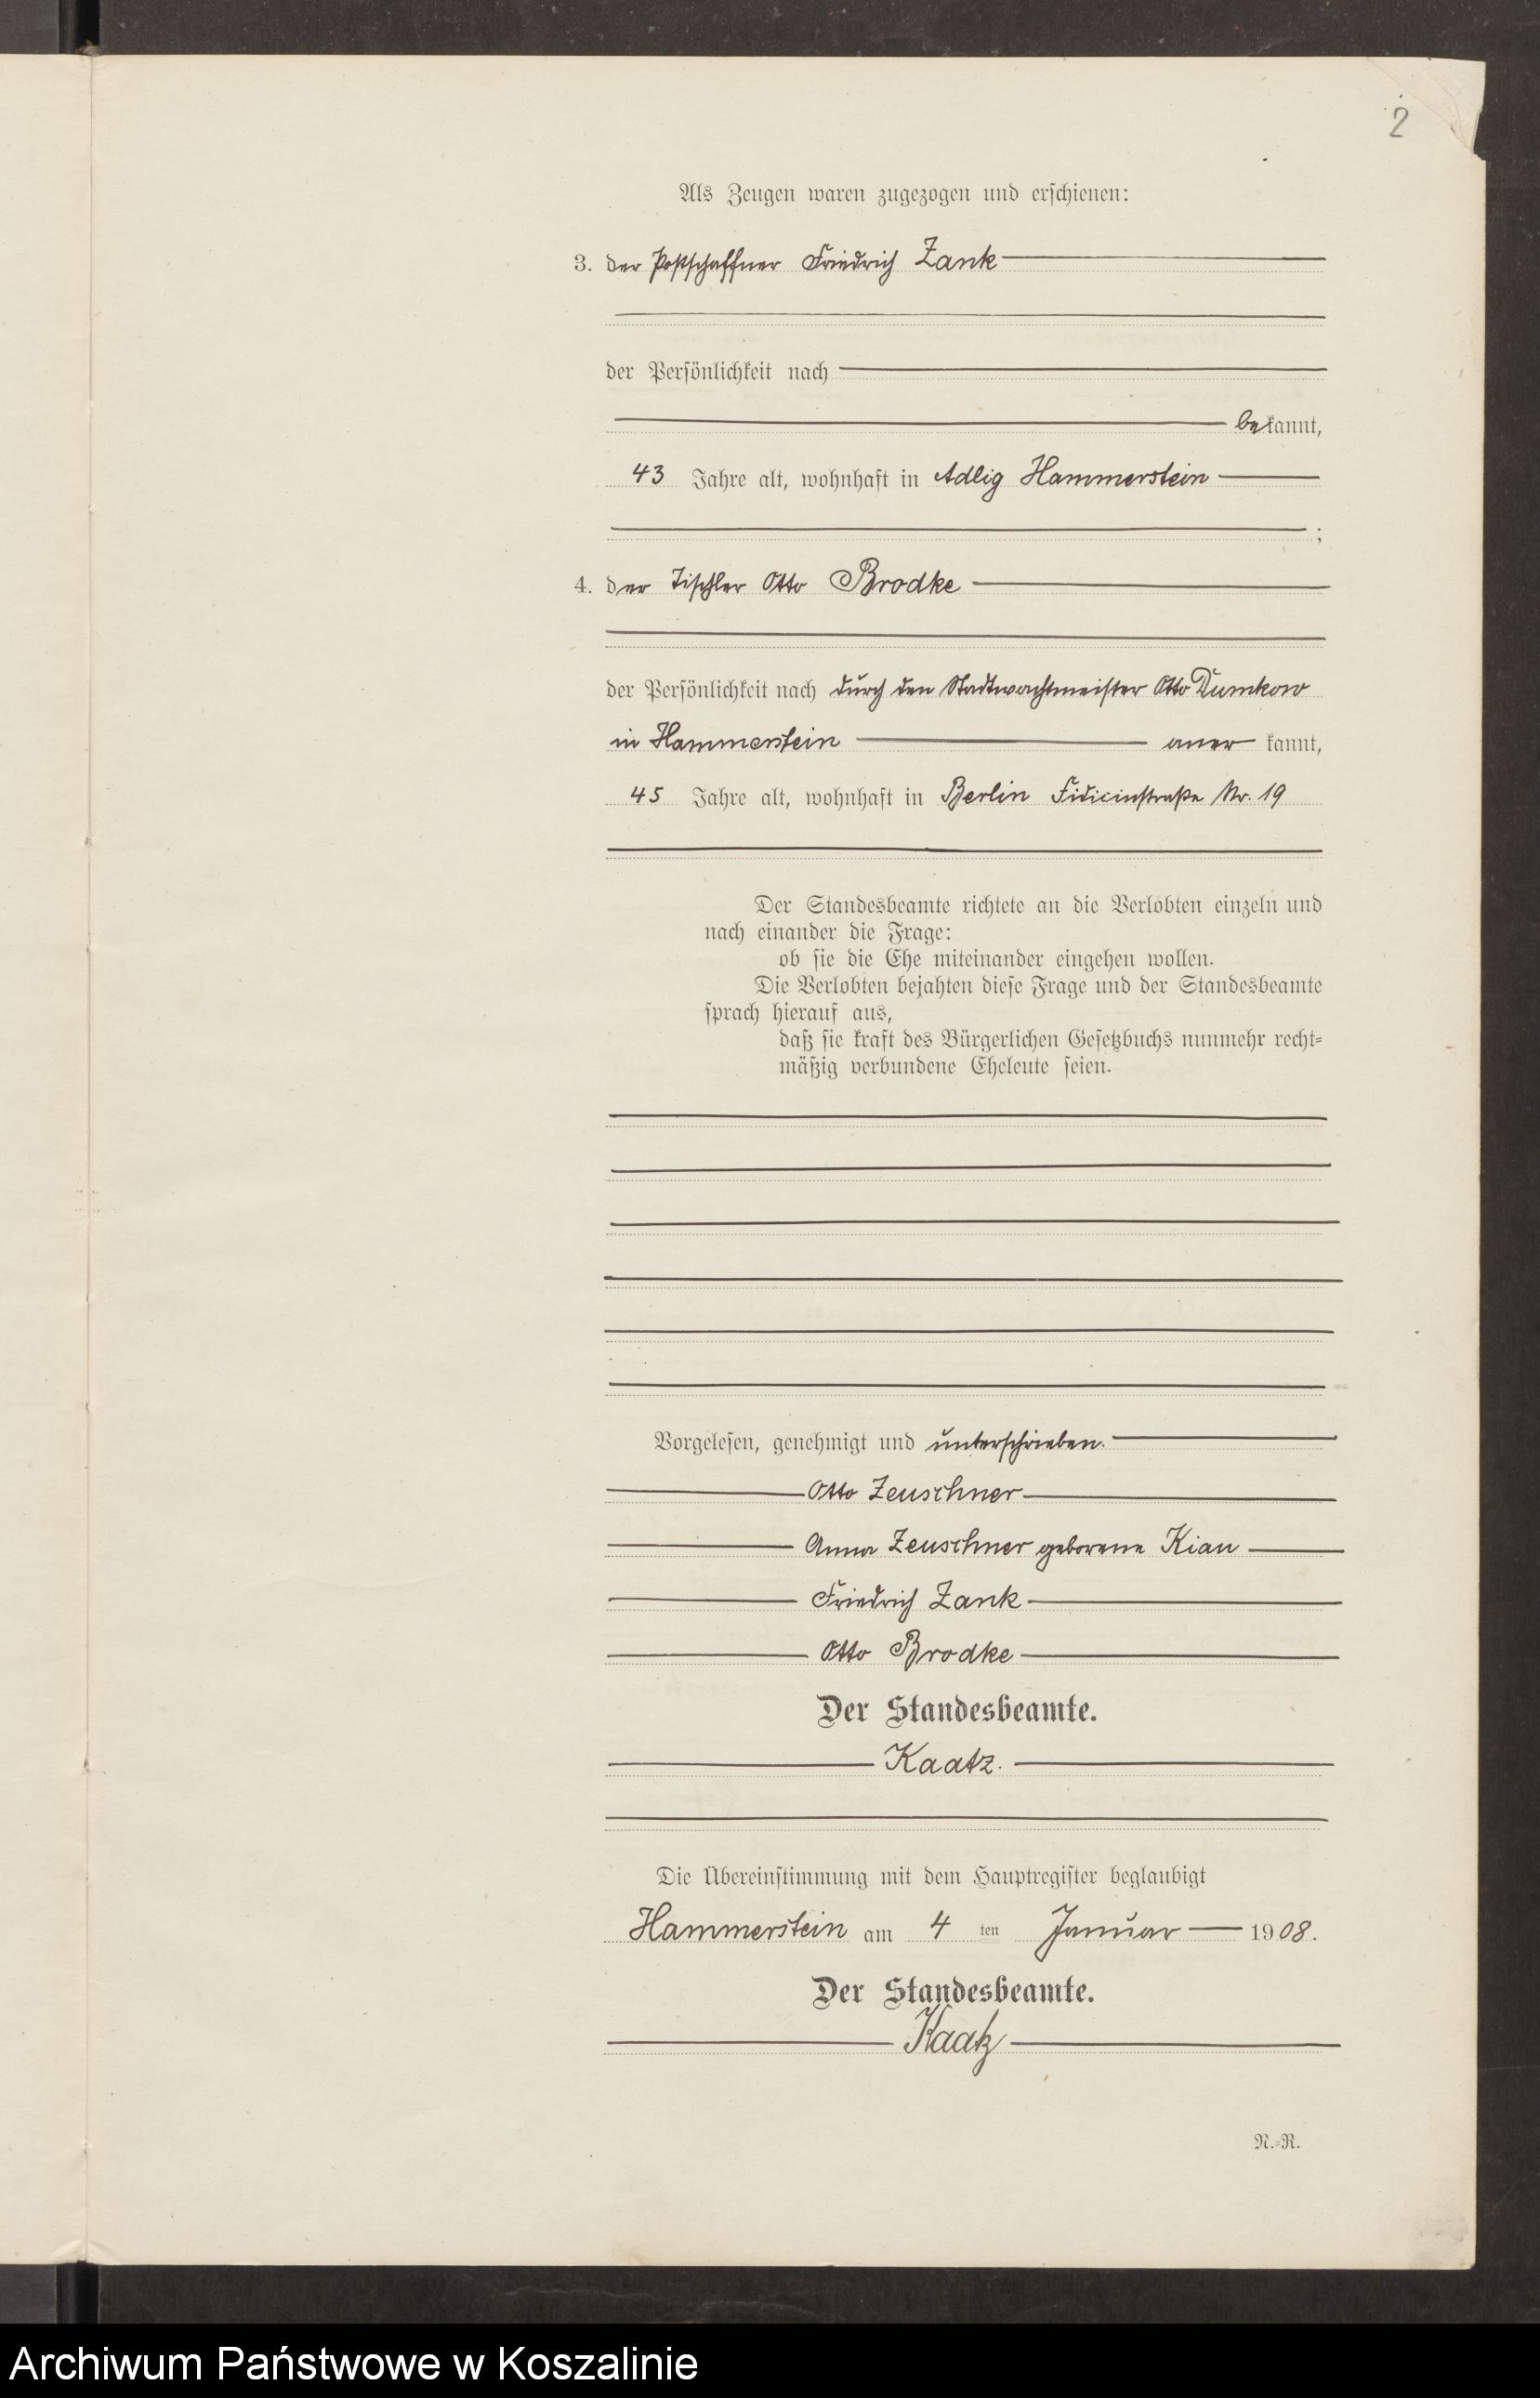 2
Als Zeugen waren zugezogen und erschienen:
3. der Postschaffner Friedrich Zank
der Persönlichkeit nach
bekannt,
43 Jahre alt, wohnhaft in Adlig Hammerstein
;
4. der Tischler Otto Brodke
der Persönlichkeit nach durch den Stadtwachtmeister Otto Dumkow
in Hammerstein aner kannt,
45 Jahre alt, wohnhaft in Berlin Fidicinstraße Nr. 19
Der Standesbeamte richtete an die Verlobten einzeln und
nach einander die Frage:
ob sie die Ehe miteinander eingehen wollen.
Die Verlobten bejahten diese Frage und der Standesbeamte
sprach hierauf aus,
daß sie kraft des Bürgerlichen Gesetzbuchs nunmehr recht-
mäßig verbundene Eheleute seien.
Vorgelesen, genehmigt und unterschrieben.
Otto Zeuschner
Anna Zeuschner geborene Kian
Friedrich Zank
Otto Brodke
Der Standesbeamte.
Kaatz.
Die Übereinstimmung mit dem Hauptregister beglaubigt
Hammerstein am 4 ten Januar 1908.
Der Standesbeamte.
Kaatz
N.-R.
Archiwum Państwowe w Koszalinie